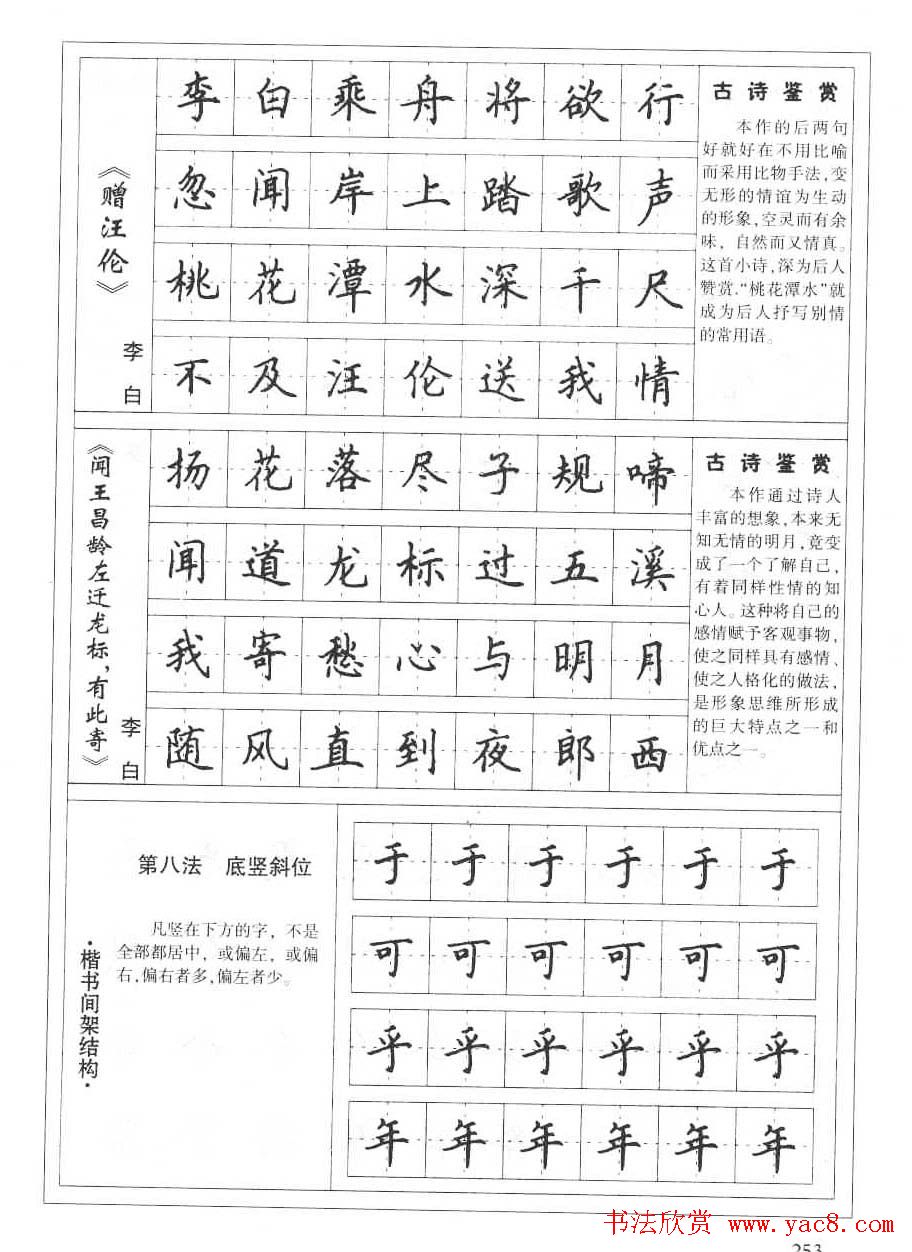 《赠汪伦》
李白
李白乘舟将欲行
忽闻岸上踏歌声
桃花潭水深千尺
不及汪伦送我情
古诗鉴赏
本作的后两句
好就好在不用比喻
而采用比物手法,变
无形的情谊为生动
的形象,空灵而有余
味，自然而又情真。
这首小诗,深为后人
赞赏.“桃花潭水”就
成为后人抒写别情
的常用语。
《闻王昌龄左迁龙标，有此寄》
李白
扬花落尽子规啼
闻道龙标过五溪
我寄愁心与明月
随风直到夜郎西
古诗鉴赏
本作通过诗人
丰富的想象,本来无
知无情的明月,竟变
成了一个了解自己,
有着同样性情的知
心人。这种将自己的
感情赋予客观事物,
使之同样具有感情、
使之人格化的做法,
是形象思维所形成
的巨大特点之一和
优点之一。
·楷书间架结构·
第八法 底竖斜位
凡竖在下方的字，不是
全部都居中，或偏左，或偏
右,偏右者多,偏左者少。
于于于于于于
可可可可可可
乎乎乎乎乎乎
年年年年年年
书法欣赏 www.yac8.com
253